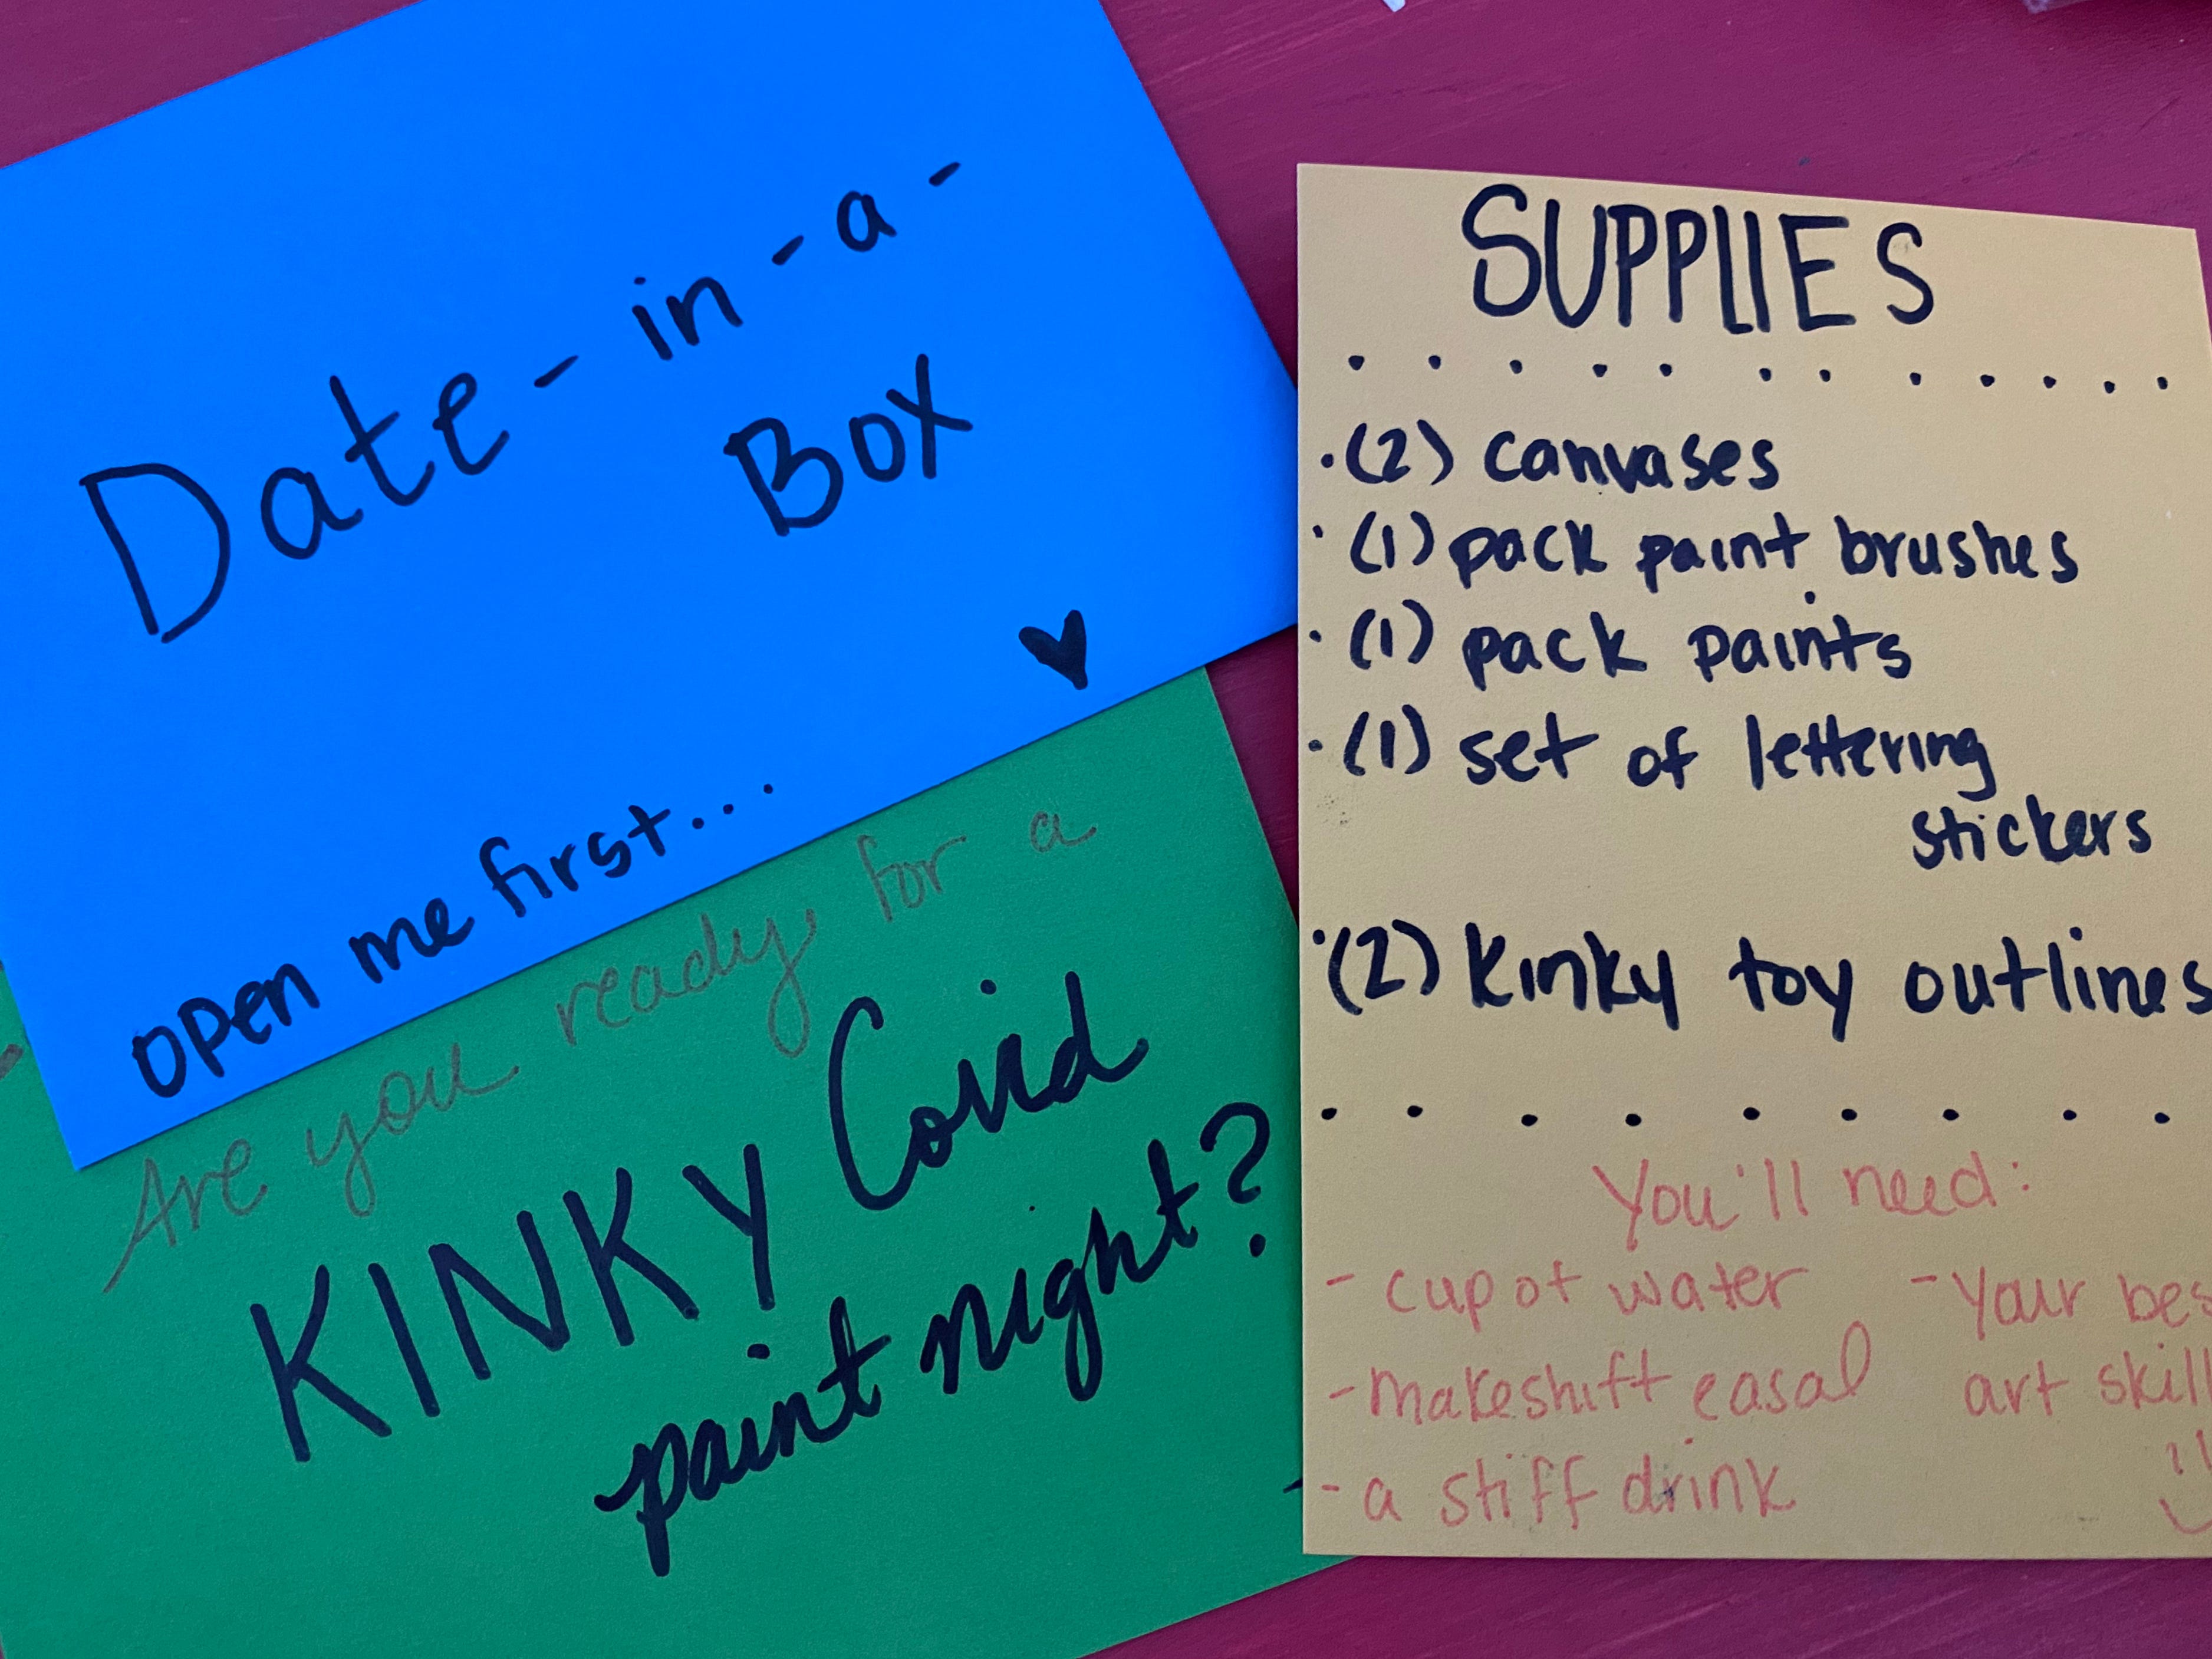 Date-in-a-
Box
♥
open me first...
Are you ready for a
KINKY Covid
paint night?
SUPPLIES
. . . . . . . . . . . .
·(2) canvases
·(1) pack paint brushes
·(1) pack paints
·(1) set of lettering
stickers
·(2) kinky toy outlines
. . . . . . . . .
You'll need:
- cup of water
- makeshift easal
- a stiff drink
- Your bes
art skill